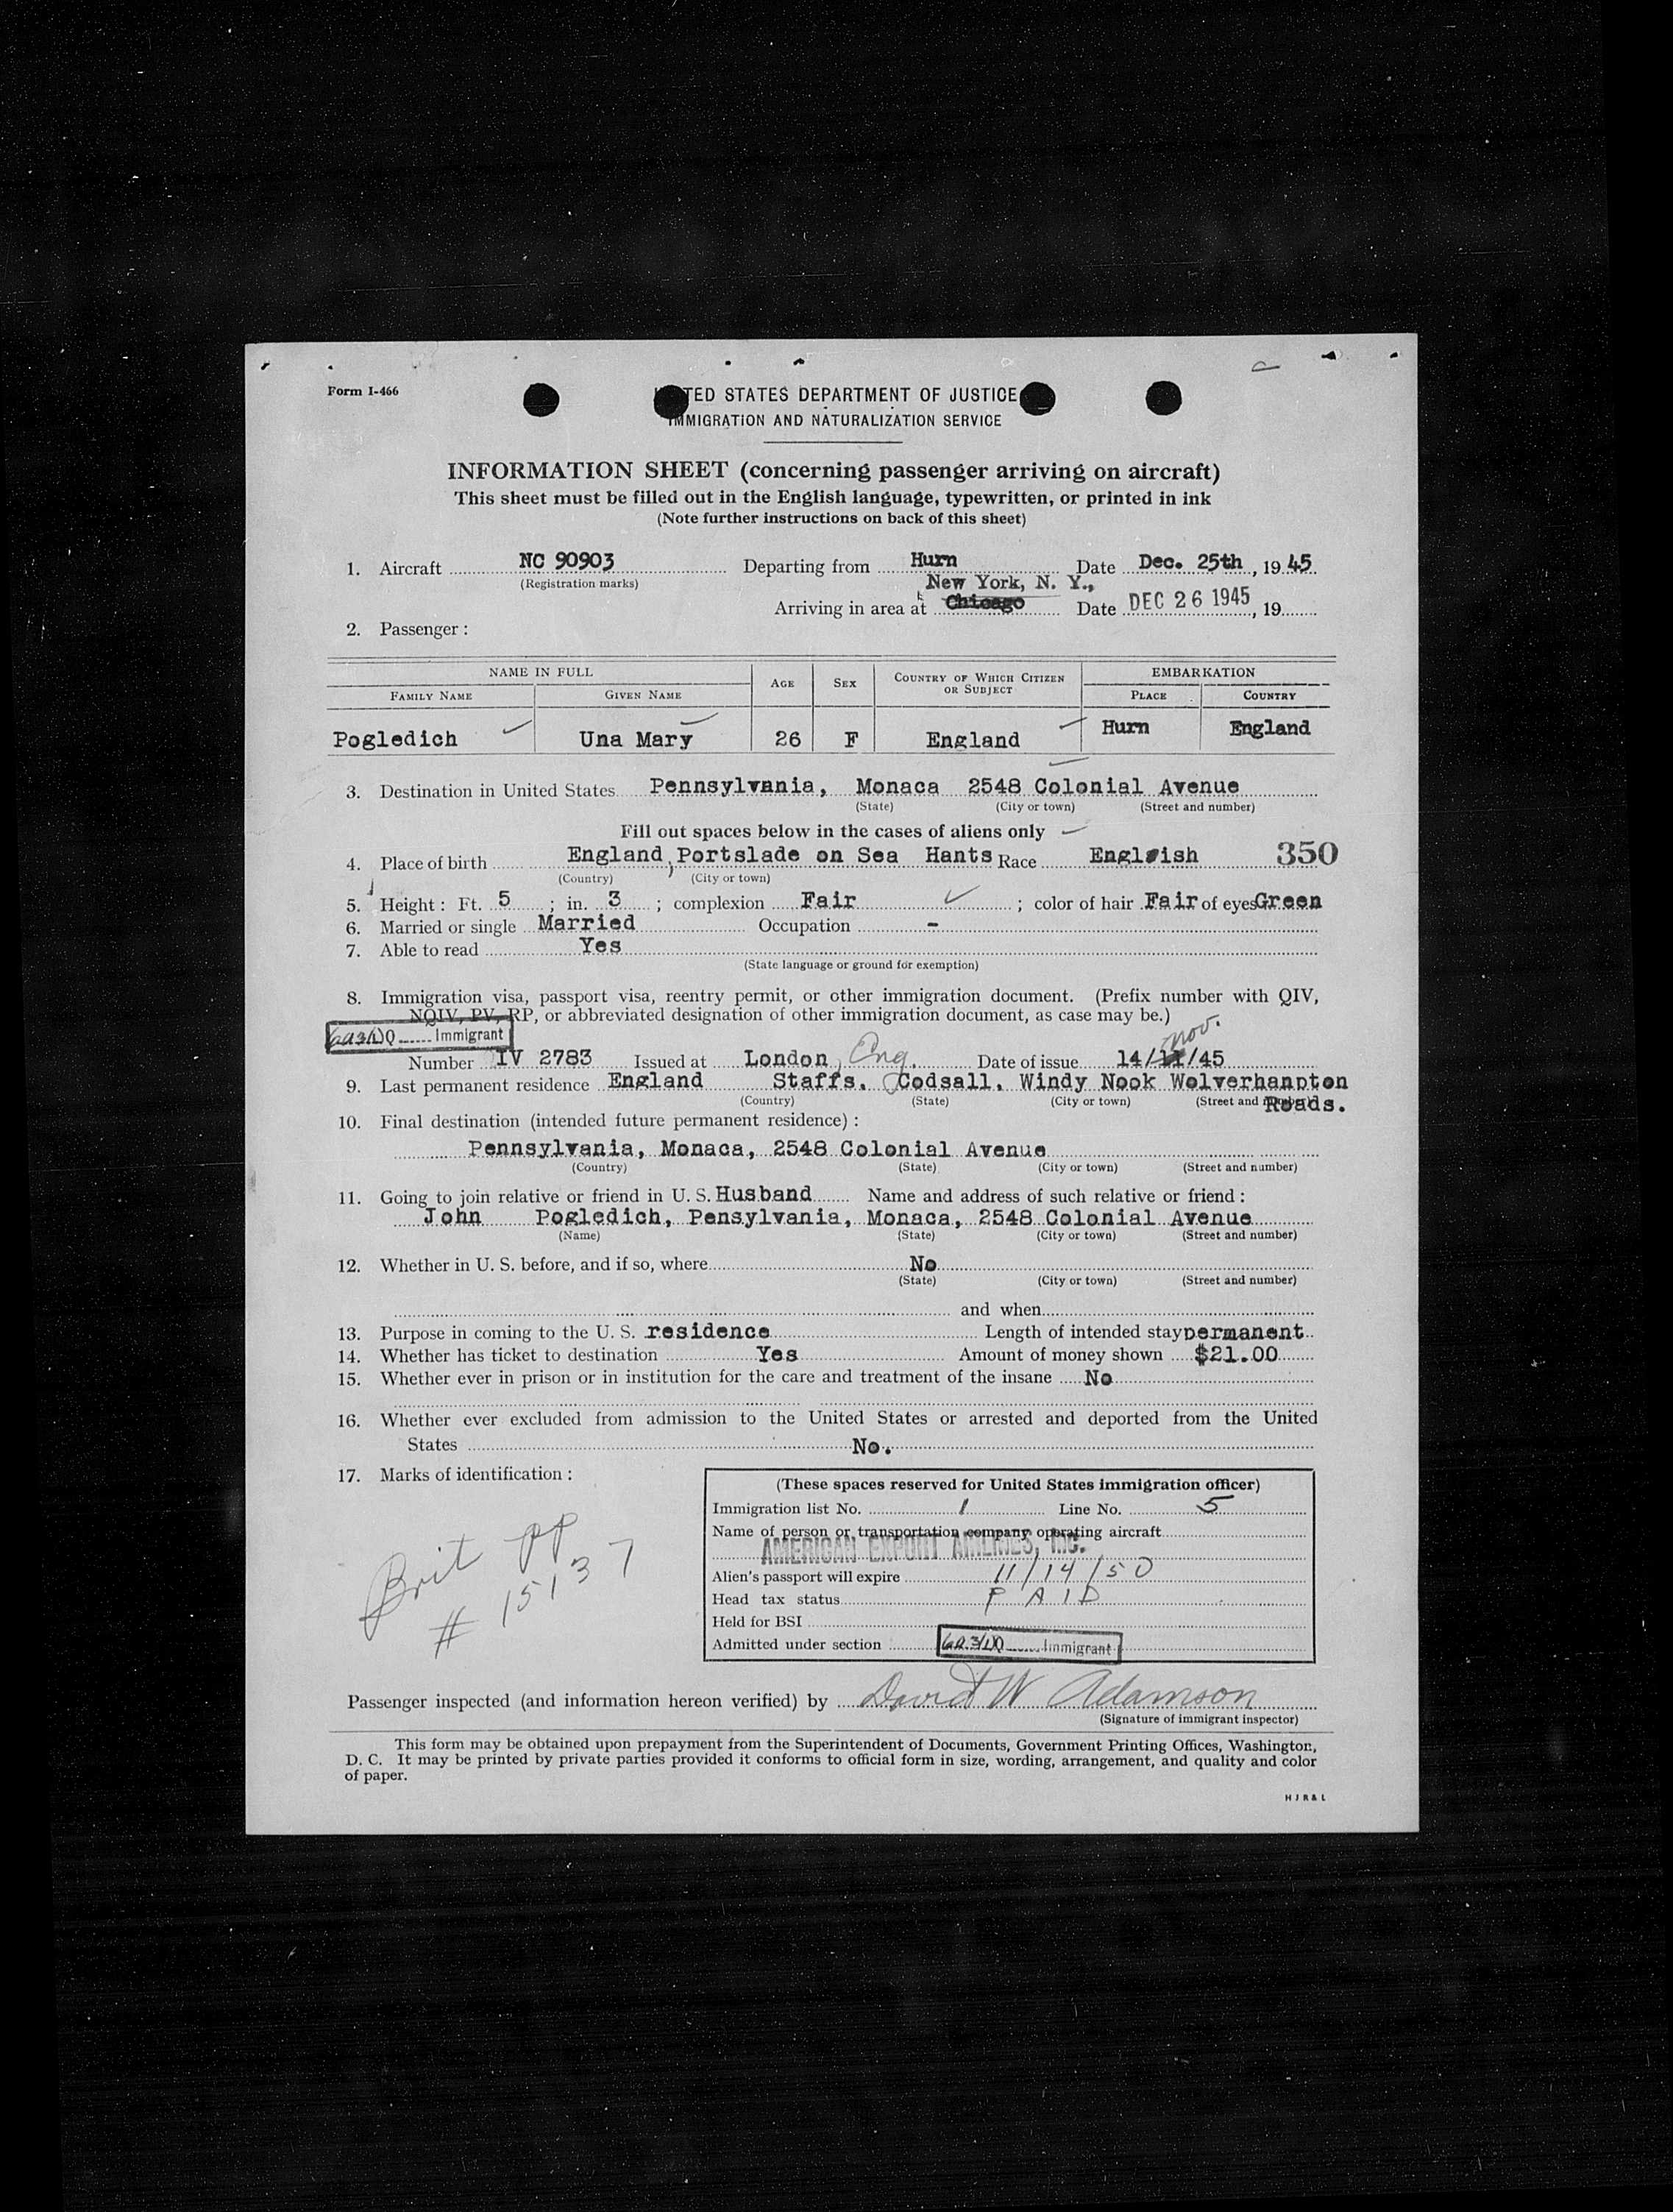 Form I-466
TED STATES DEPARTMENT OF JUSTICE
IMMIGRATION AND NATURALIZATION SERVICE
INFORMATION SHEET (concerning passenger arriving on aircraft)
This sheet must be filled out in the English language, typewritten, or printed in ink
(Note further instructions on back of this sheet)
1. Aircraft NC 90903 Departing from Hurn Date Dec. 25th, 1945
(Registration marks) New York, N. Y.,
Arriving in area at Chicago Date DEC 26 1945, 19
2. Passenger:
NAME IN FULL AGE SEX COUNTRY OF WHICH CITIZEN OR SUBJECT EMBARKATION
FAMILY NAME GIVEN NAME PLACE COUNTRY
Pogledich Una Mary 26 F England Hurn England
3. Destination in United States Pennsylvania, Monaca 2548 Colonial Avenue
(State) (City or town) (Street and number)
Fill out spaces below in the cases of aliens only
4. Place of birth England, Portslade on Sea Hants Race English 350
(Country) (City or town)
5. Height: Ft. 5; in. 3; complexion Fair; color of hair Fair of eyes Green
6. Married or single Married Occupation -
7. Able to read Yes
(State language or ground for exemption)
8. Immigration visa, passport visa, reentry permit, or other immigration document. (Prefix number with QIV,
NQIV, PV, RP, or abbreviated designation of other immigration document, as case may be.)
Immigrant Nov.
Number IV 2783 Issued at London, Eng. Date of issue 14/11/45
9. Last permanent residence England Staffs. Codsall. Windy Nook Wolverhanpton
(Country) (State) (City or town) (Street and number) Roads.
10. Final destination (intended future permanent residence):
Pennsylvania, Monaca, 2548 Colonial Avenue
(Country) (State) (City or town) (Street and number)
11. Going to join relative or friend in U. S. Husband Name and address of such relative or friend:
John Pogledich, Pensylvania, Monaca, 2548 Colonial Avenue
(Name) (State) (City or town) (Street and number)
12. Whether in U. S. before, and if so, where No
(State) (City or town) (Street and number)
and when
13. Purpose in coming to the U. S. residence Length of intended stay permanent
14. Whether has ticket to destination Yes Amount of money shown $21.00
15. Whether ever in prison or in institution for the care and treatment of the insane No
16. Whether ever excluded from admission to the United States or arrested and deported from the United
States No.
17. Marks of identification:
Brit PP
# 15137
(These spaces reserved for United States immigration officer)
Immigration list No. 1 Line No. 5
Name of person or transportation company operating aircraft
AMERICAN EXPORT AIRLINES, INC.
Alien's passport will expire 11/14/50
Head tax status PAID
Held for BSI
Admitted under section Immigrant
Passenger inspected (and information hereon verified) by David W Adamson
(Signature of immigrant inspector)
This form may be obtained upon prepayment from the Superintendent of Documents, Government Printing Offices, Washington,
D. C. It may be printed by private parties provided it conforms to official form in size, wording, arrangement, and quality and color
of paper.
H J R & L